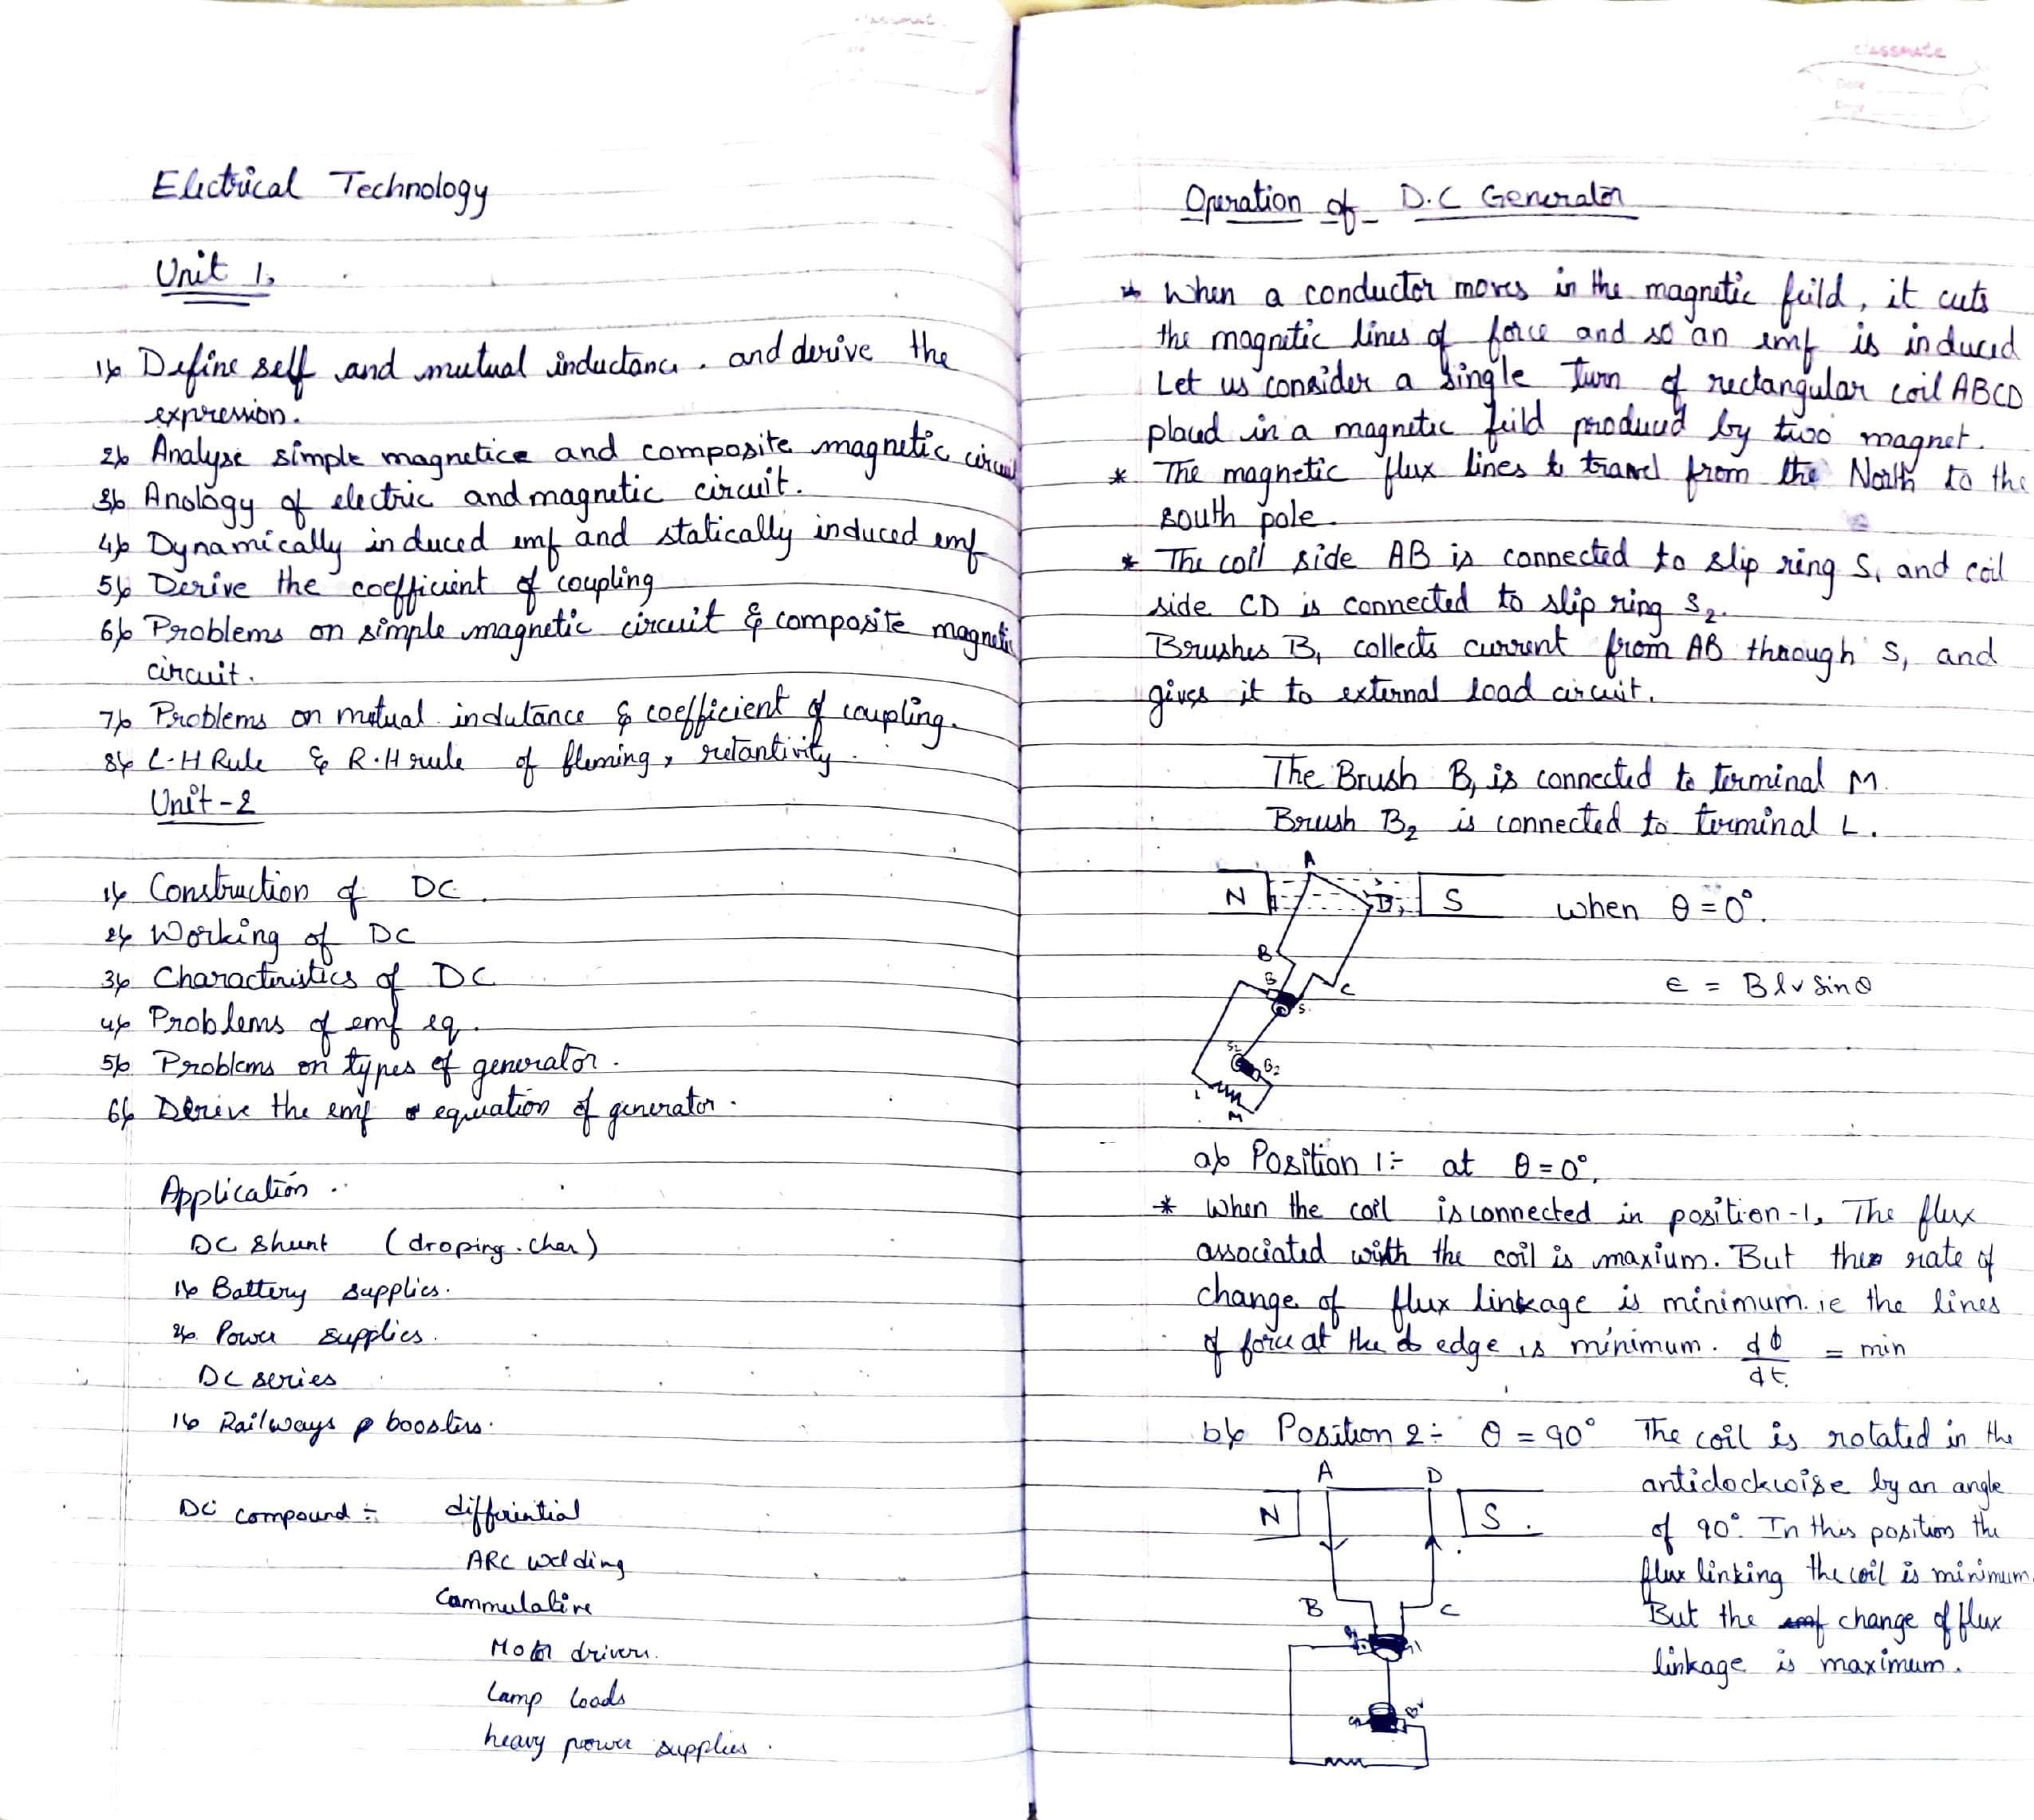 Electrical Technology
Unit 1.
1) Define self and mutual inductance. and derive the
expression.
2) Analyse simple magnetice and composite magnetic circuit
3) Anology of electric and magnetic circuit.
4) Dynamically induced emf and statically induced emf
5) Derive the coefficient of coupling
6) Problems on simple magnetic circuit & composite magnetic
circuit.
7) Problems on mutual indutance & coefficient of coupling.
8) L.H Rule & R.H rule of fleming, retantivity.
Unit-2
1) Construction of DC.
2) Working of DC
3) Characteristics of DC
4) Problems of emf eq.
5) Problems on types of generator.
6) Derive the emf equation of generator.
Application.
DC Shunt (droping.char)
1) Battery supplies.
2) Power supplies.
DC series
1) Railways boosters.
DC compound :- differintial
ARC welding
Cammulative
Motor drivers.
Lamp loads
heavy power supplies.
classmate
Date
Page
Operation of D.C Generator
* When a conductor moves in the magnetic feild, it cuts
the magnetic lines of force and so an emf is induced
Let us consider a single Turn of rectangular coil ABCD
placed in a magnetic feild produced by two magnet.
* The magnetic flux lines to travel from the North to the
south pole.
* The coil side AB is connected to slip ring S1 and coil
side CD is connected to slip ring S2.
Brushes B1 collects current from AB through S1 and
gives it to external load circuit.
The Brush B1 is connected to terminal M.
Brush B2 is connected to terminal L.
A
N D S when θ = 0°.
B
B C
S
e = Blv Sinθ
S2
B2
L
M
a) Position 1:- at θ = 0°,
* When the coil is connected in position-1, The flux
associated with the coil is maxium. But the rate of
change of flux linkage is minimum. ie the lines
of force at the edge is minimum. dϕ/dt = min
b) Position 2:- θ = 90° The coil is rotated in the
A D anticlockwise by an angle
N S. of 90°. In this position the
flux linking the coil is minimum.
B C But the change of flux
linkage is maximum.